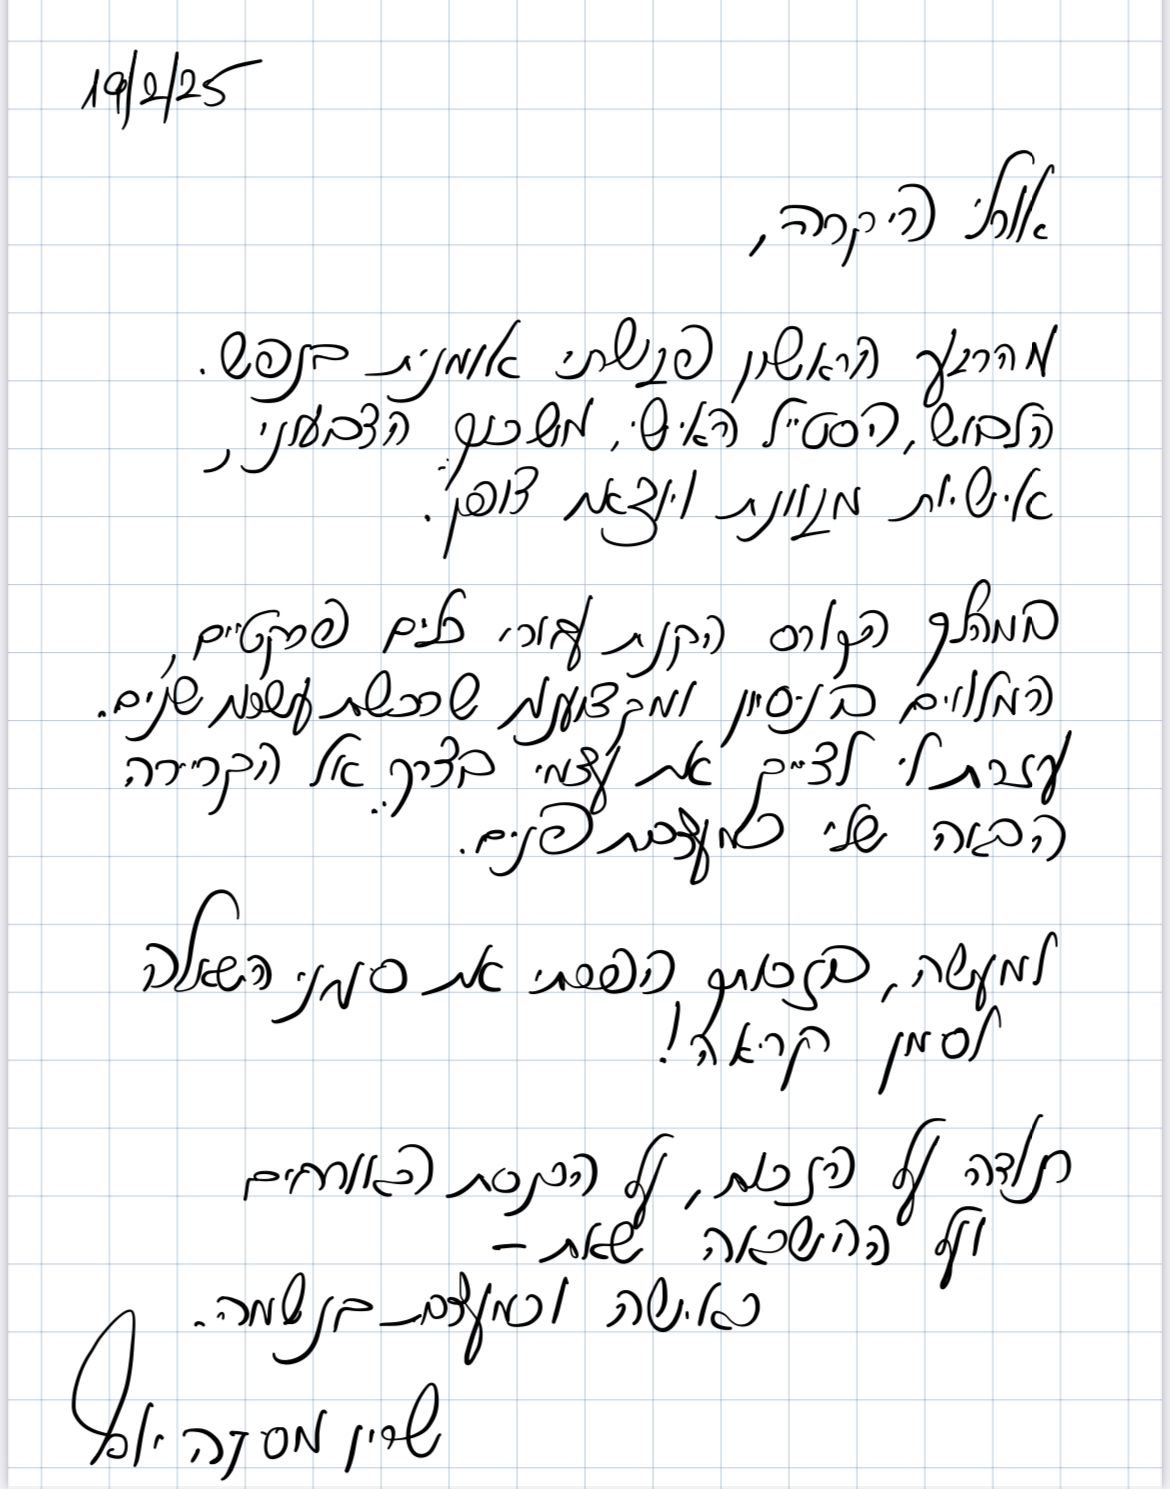 19/2/25
אורלי היקרה,
מהרגע הראשון פגשתי אומנית בנפש.
הלבוש, הסטייל האישי, משכנך הצבעוני,
אישיות מגוונת ויוצאת דופן.
במהלך הקורס הקנת עבורי כלים פרקטיים,
המלווים בניסיון ומקצועיות שרכשת עשרות שנים.
עזרת לי לציים את עצמי בדרך אל הקריירה
הבאה שלי כמעצבת פנים.
למעשה, בזכותך הפכתי את סימני השאלה
לסמן קריאה!
תודה על הזכות, על הכנסת האורחים
ועל ההשראה שאת -
כאישה וכמעצבת בנשמה.
שרין מסקה